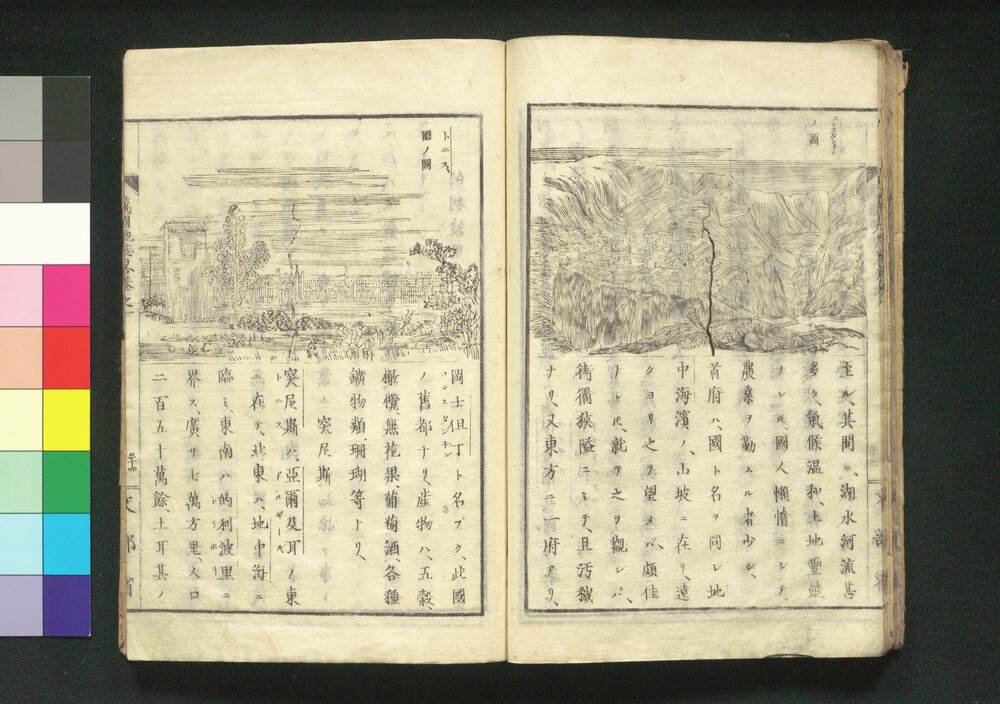 コンスタンチン
ノ圖
至ル、其間ニ、湖水河流甚
多ク、氣候温和、土地豊饒
ナレ𪜈、國人懶惰ニシテ、
農業ヲ勤ムル者少シ、
首府ハ、國ト名ヲ同シ地
中海濱ノ、山坡ニ在リ、遠
クヨリ之ヲ望メバ、頗佳
ナレ𪜈、就テ之ヲ觀レバ、
街衢狹隘ニシテ、且汚穢
ナリ、又東方ニ一府アリ、
トニス
國ノ圖
岡士但丁ト名ヅク、此國
コンスタンチン
ノ舊都ナリ、産物ハ、五穀、
橄欖無花果、葡萄酒、各種
鑛物類、珊瑚等ナリ、
突尼斯
突尼斯ハ、亞爾及耳ノ東
トニス アルゼール
ニ在テ、北東ハ、地中海ニ
臨ミ、東南ハ的利波里ニ
トリポリ
界ス、廣サ七萬方里、人口
二百五十萬餘、土耳其ノ
文部省